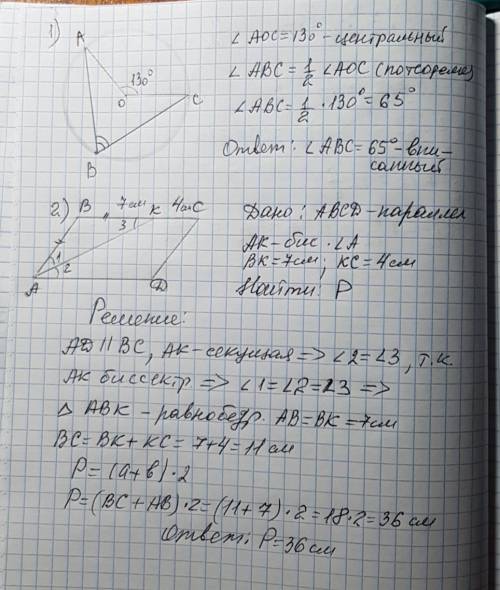 1)
A
130°
O
C
B
∠ AOC = 130° - центральный
∠ ABC = 1/2 ∠AOC (по теореме)
∠ ABC = 1/2 · 130° = 65°
Ответ: ∠ ABC = 65° - впи-
санный
2) B 7см K 4см C
3
1
2
A
D
Дано: ABCD - параллел
AK - бис. ∠A
BK = 7см; KC = 4см
Найти: P
Решение:
AD || BC, AK - секущая => ∠2 = ∠3, т.к.
AK биссектр => ∠1 = ∠2 = ∠3 =>
△ ABK - равнобедр. AB = BK = 7см
BC = BK + KC = 7+4 = 11 см
P = (a + b) · 2
P = (BC + AB) · 2 = (11 + 7) · 2 = 18 · 2 = 36 см
Ответ: P = 36 см